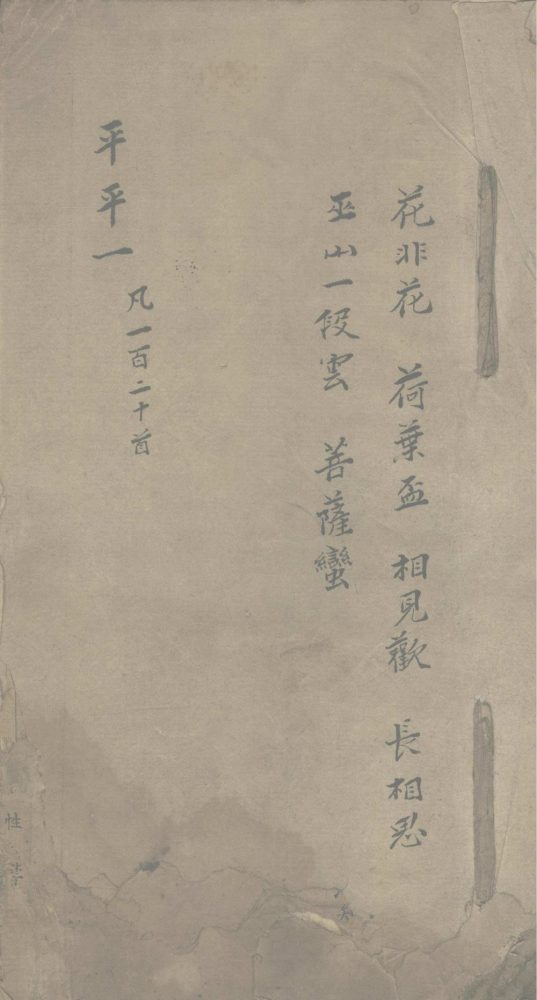 花非花　荷葉盃　相見歡　長相思
巫山一段雲　菩薩蠻
平平一　凡一百二十首
性